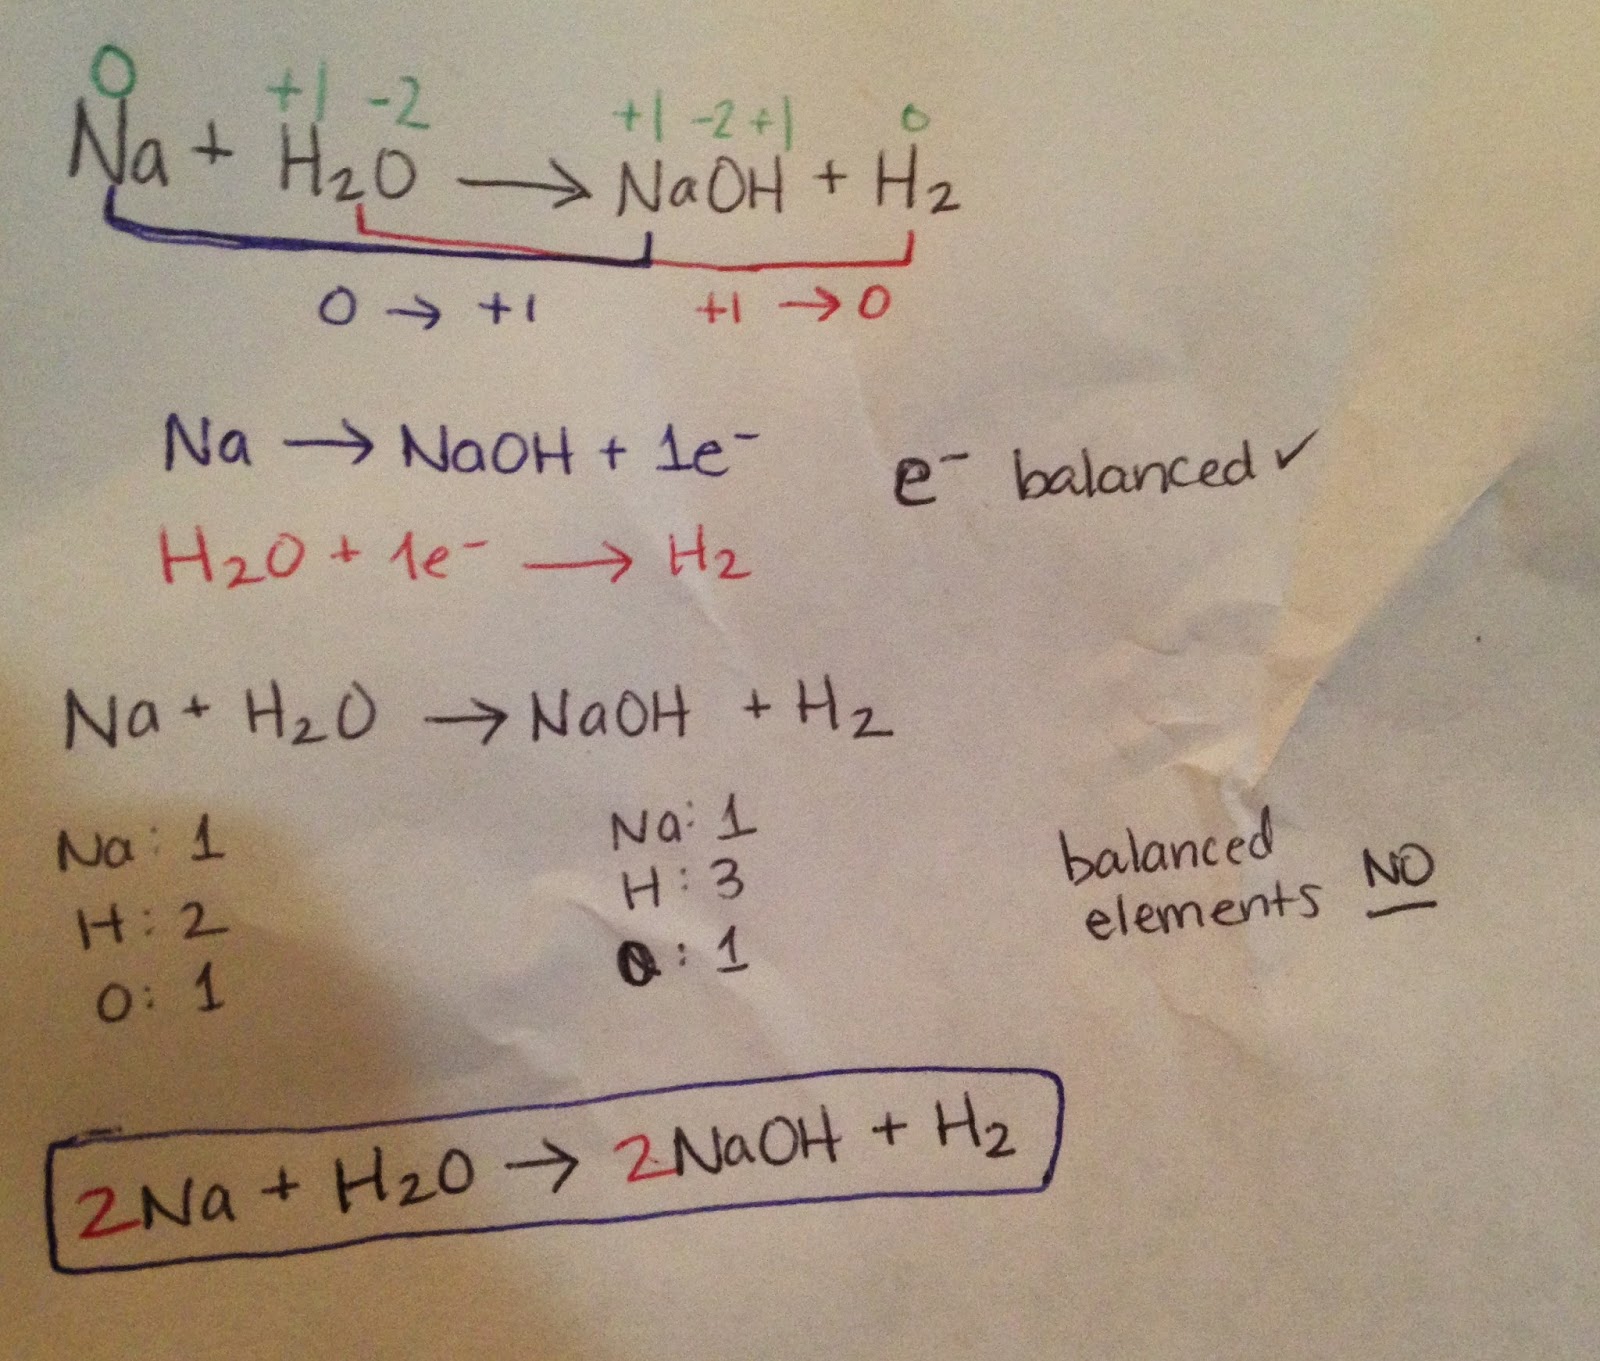 0 +1 -2 +1 -2 +1 0
Na + H2O → NaOH + H2
0 → +1 +1 → 0
Na → NaOH + 1e⁻
e⁻ balanced ✓
H2O + 1e⁻ → H2
Na + H2O → NaOH + H2
Na: 1 Na: 1
H: 2 H: 3
O: 1 O: 1
balanced
elements NO
2Na + H2O → 2NaOH + H2